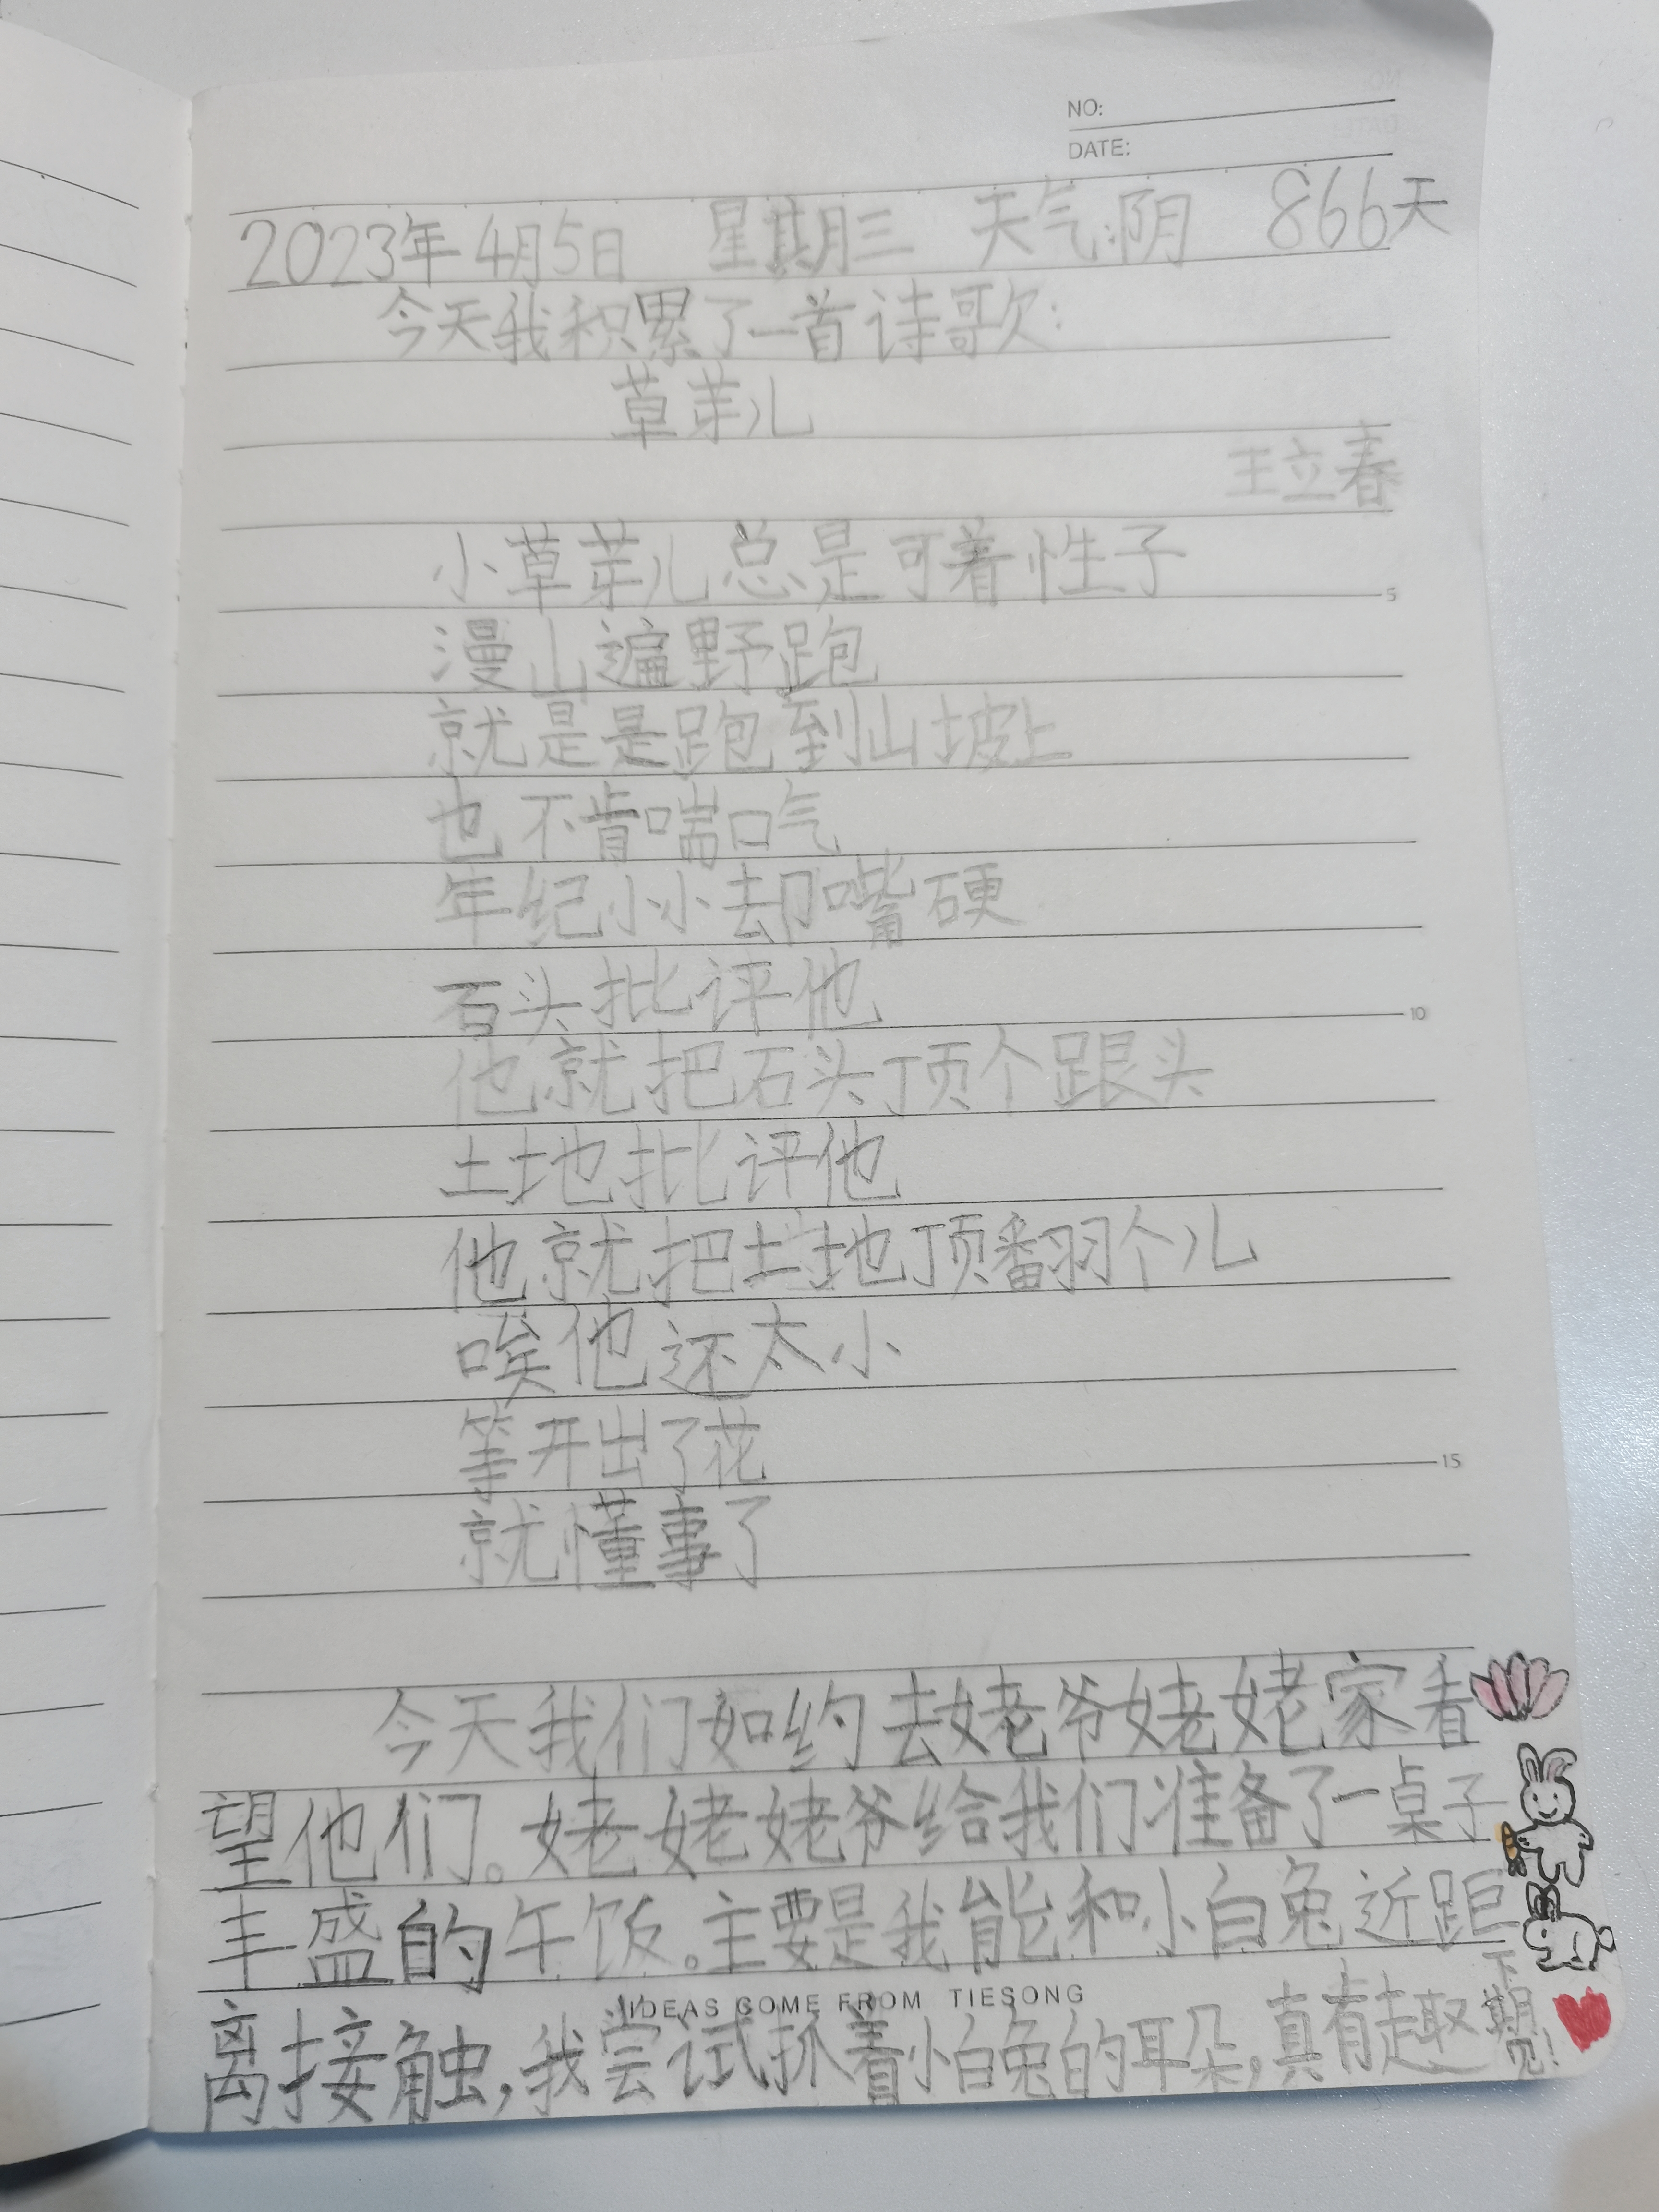 NO:
DATE:
2023年4月5日 星期三 天气:阴 866天
今天我积累了一首诗歌:
草芽儿
王立春
小草芽儿总是可着性子
漫山遍野跑
就是是跑到山坡上
也不肯喘口气
年纪小小却嘴硬
石头批评他
他就把石头顶个跟头
土地批评他
他就把土地顶翻个儿
唉他还太小
等开出了花
就懂事了
今天我们如约去姥爷姥姥家看
望他们。姥姥姥爷给我们准备了一桌子
丰盛的午饭。主要是我能和小白兔近距
离接触,我尝试抓着小白兔的耳朵,真有趣
下期见!
IDEAS COME FROM TIESONG
5
10
15